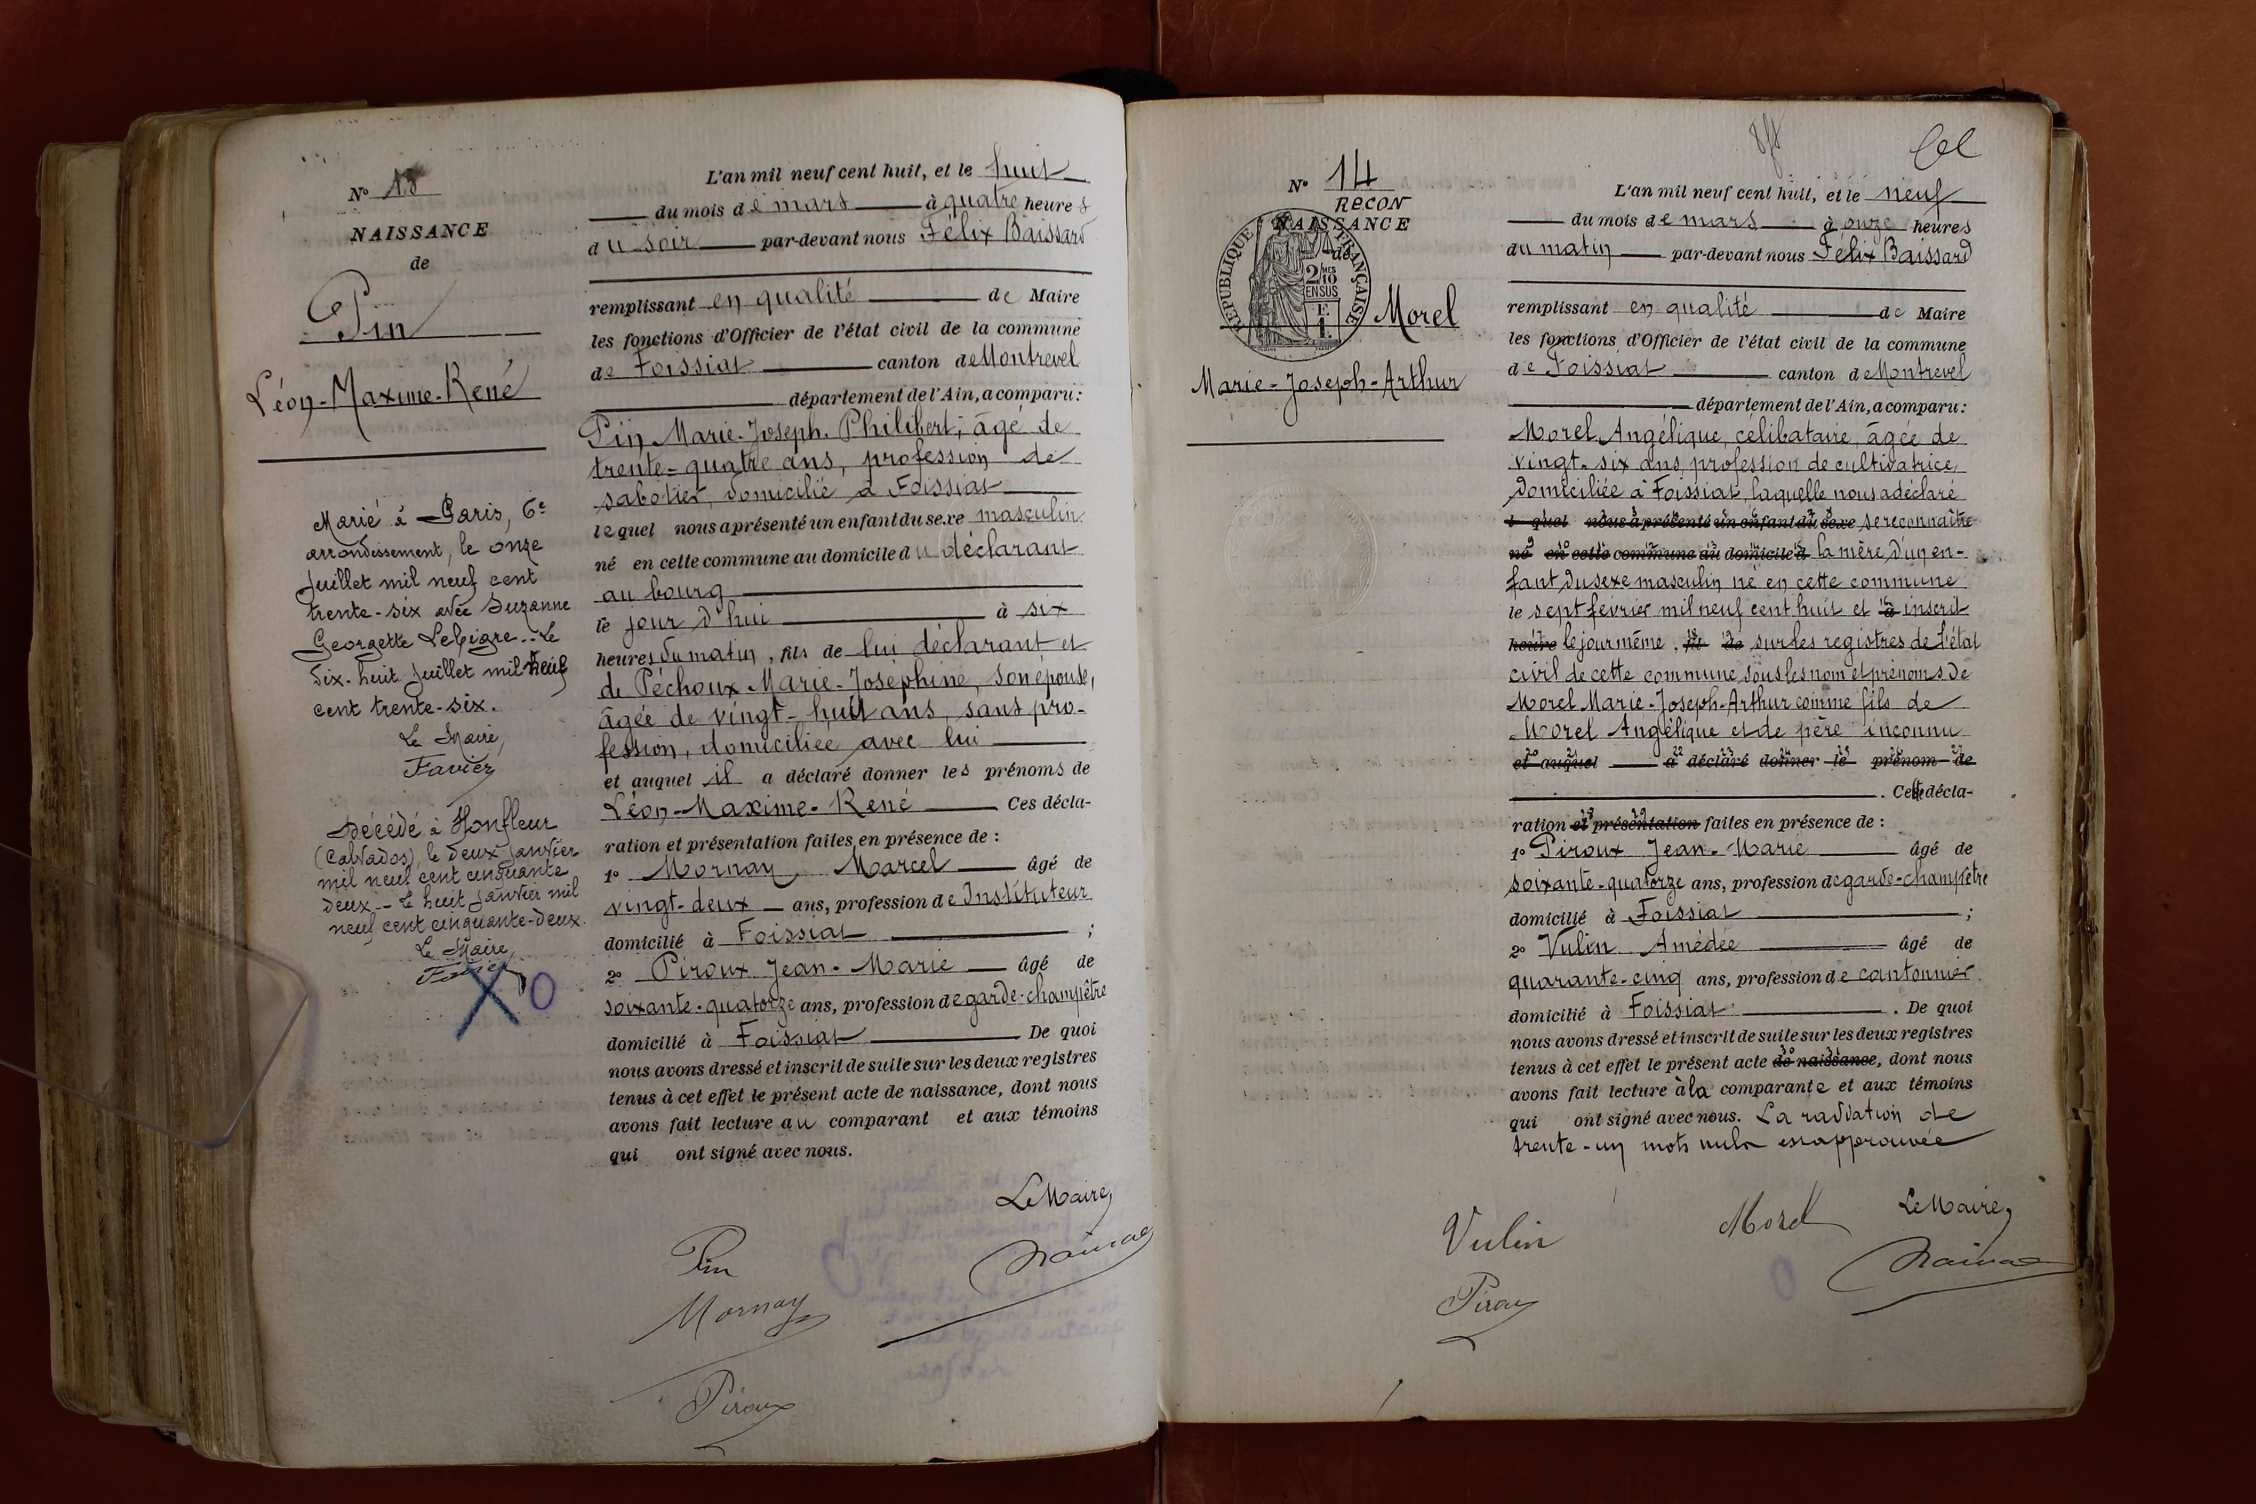 N° 13
NAISSANCE
de
Pin
Léon-Maxime-René
Marié à Paris, 6e
arrondissement, le onze
juillet mil neuf cent
trente-six avec Suzanne
Georgette Lebigre.. Le
dix-huit juillet mil neuf
cent trente-six.
Le Maire,
Favier
Décédé à Honfleur
(Calvados), le deux janvier
mil neuf cent cinquante
deux -- Le huit janvier mil
neuf cent cinquante-deux.
Le Maire,
Favier
L'an mil neuf cent huit, et le huit
du mois de mars à quatre heures
du soir par-devant nous Félix Baissard
remplissant en qualité de Maire
les fonctions d'Officier de l'état civil de la commune
de Foissiat canton de Montrevel
département de l'Ain, a comparu:
Pin Marie-Joseph-Philibert, âgé de
trente-quatre ans, profession de
sabotier, domicilié à Foissiat
lequel nous a présenté un enfant du sexe masculin
né en cette commune au domicile du déclarant
au bourg
le jour d'hui à six
heures du matin, fils de lui déclarant et
de Péchoux Marie-Joséphine, son épouse,
âgée de vingt-huit ans, sans pro-
fession, domiciliée avec lui
et auquel il a déclaré donner les prénoms de
Léon-Maxime-René Ces décla-
ration et présentation faites en présence de :
1° Mornay Marcel âgé de
vingt-deux ans, profession de Instituteur
domicilié à Foissiat ;
2° Piroux Jean-Marie âgé de
soixante-quatorze ans, profession de garde-champêtre
domicilié à Foissiat De quoi
nous avons dressé et inscrit de suite sur les deux registres
tenus à cet effet le présent acte de naissance, dont nous
avons fait lecture au comparant et aux témoins
qui ont signé avec nous.
Le Maire,
Pin
Mornay
Piroux
N° 14
RECON
NAISSANCE
de
RÉPUBLIQUE FRANÇAISE
2/10
EN SUS
Morel
Marie-Joseph-Arthur
L'an mil neuf cent huit, et le neuf
du mois de mars à onze heures
du matin par-devant nous Félix Baissard
remplissant en qualité de Maire
les fonctions d'Officier de l'état civil de la commune
de Foissiat canton de Montrevel
département de l'Ain, a comparu:
Morel Angélique, célibataire, âgée de
vingt-six ans, profession de cultivatrice,
domiciliée à Foissiat, laquelle nous a déclaré
l quel nous a présenté un enfant du sexe se reconnaître
né en cette commune au domicile d la mère d'un en-
fant du sexe masculin né en cette commune
le sept février mil neuf cent huit et à inscrit
heure le jour même, fil de sur les registres de l'état
civil de cette commune sous les nom et prénoms de
Morel Marie-Joseph-Arthur comme fils de
Morel Angélique et de père inconnu
et auquel a déclaré donner le prénom de
. Cette décla-
ration et présentation faites en présence de :
1° Piroux Jean-Marie âgé de
soixante-quatorze ans, profession de garde-champêtre
domicilié à Foissiat ;
2° Vulin Amédée âgé de
quarante-cinq ans, profession de cantonnier
domicilié à Foissiat . De quoi
nous avons dressé et inscrit de suite sur les deux registres
tenus à cet effet le présent acte de naissance, dont nous
avons fait lecture à la comparante et aux témoins
qui ont signé avec nous. La radiation de
trente-un mots nuls est approuvée
Le Maire,
Vulin
Morel
Piroux